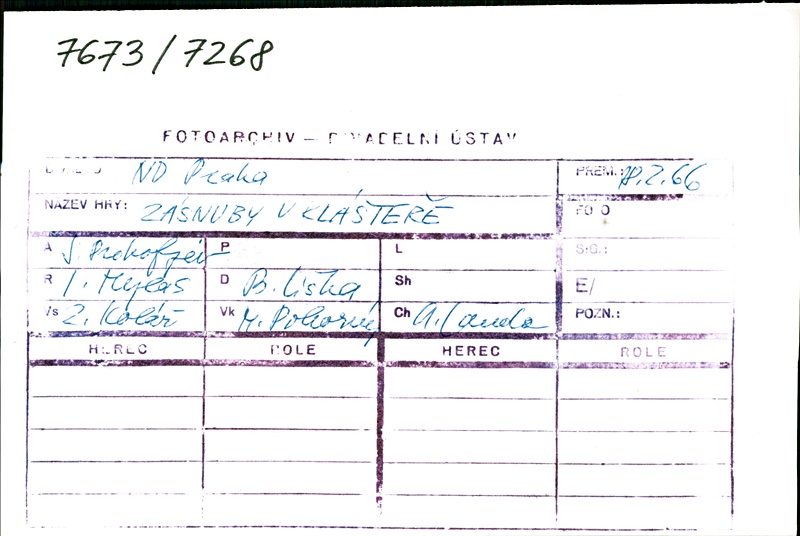 7673/7268
FOTOARCHIV — DIVADELNÍ ÚSTAV
DIVADLO ND Praha PREM.: 18.2.66
NÁZEV HRY: ZÁSNUBY V KLÁŠTEŘE FOTO
A S. Prokofjev P L SIG.:
R Mylas D B. Liška Sh E/
Vs Z. Kolář Vk M. Pokorný Ch A. Landa POZN.:
HEREC ROLE HEREC ROLE